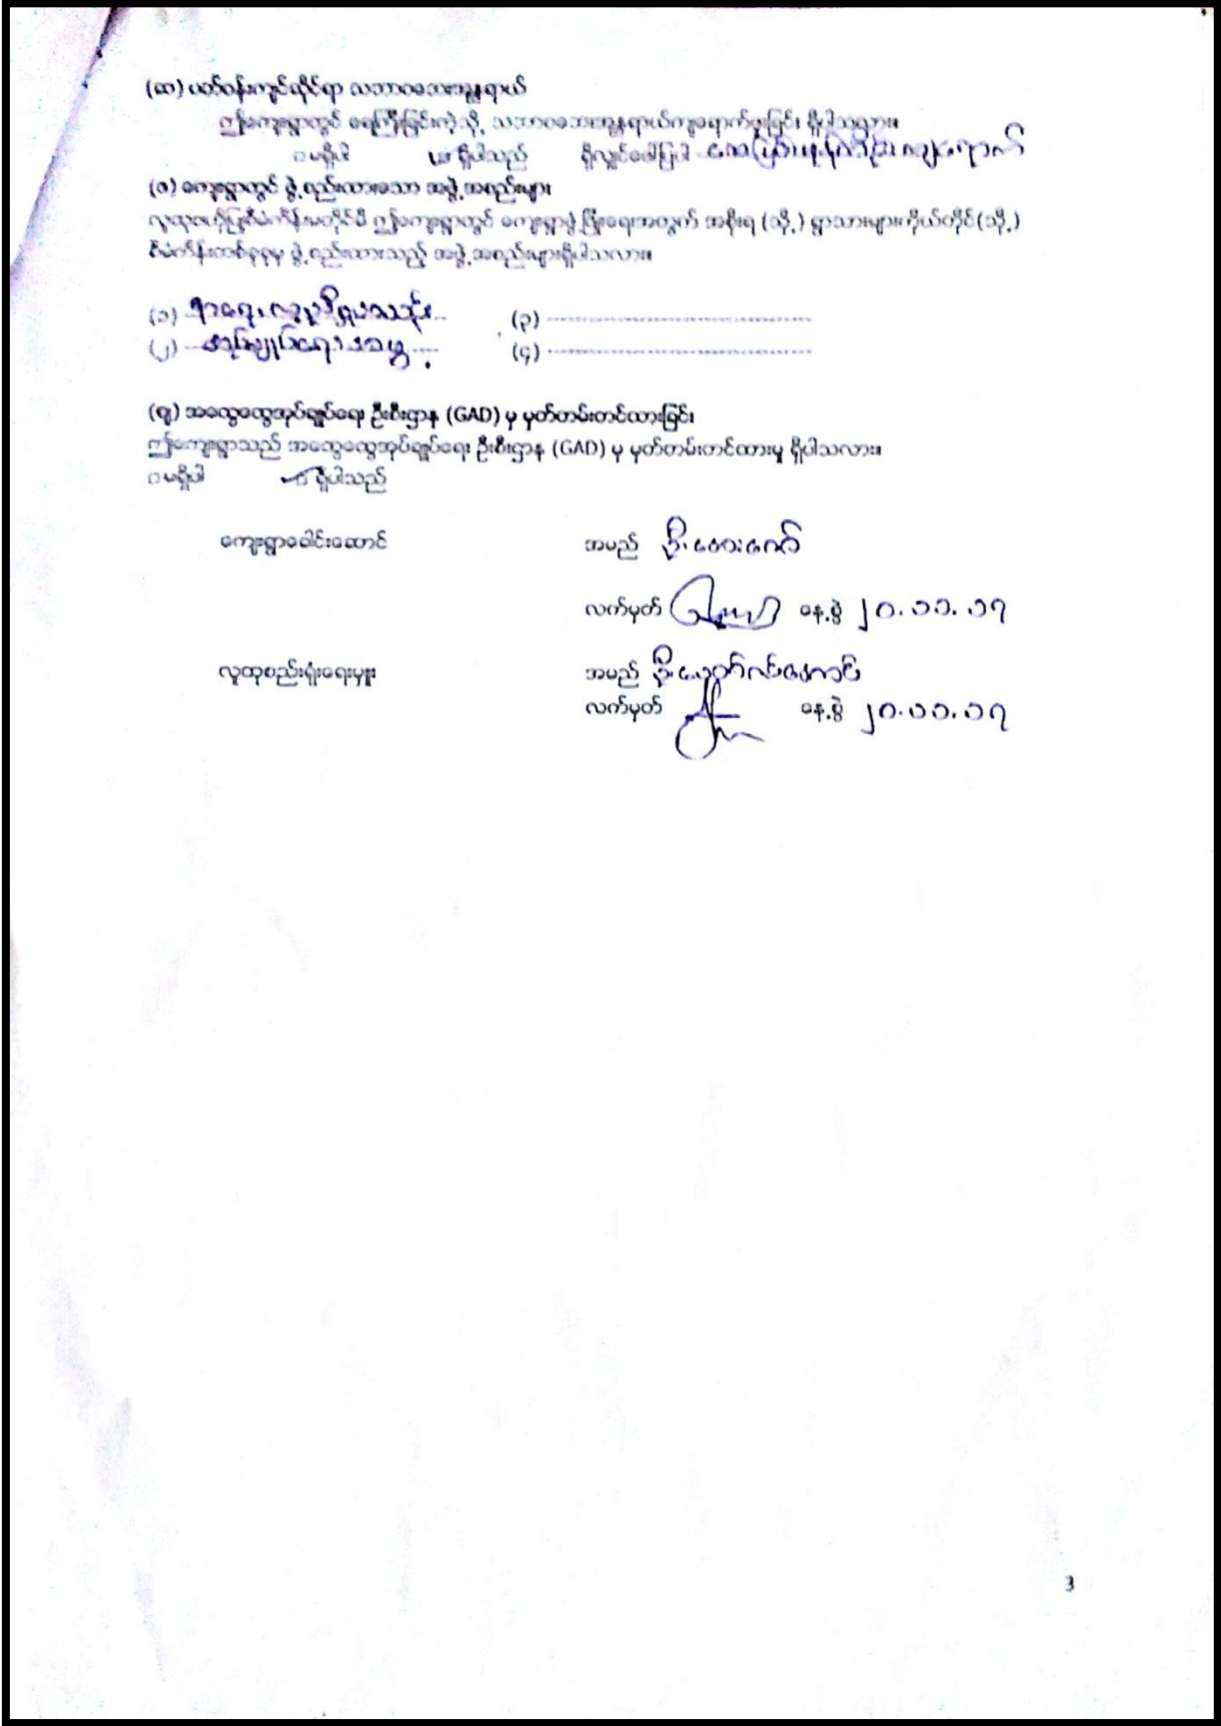 (ဆ) ပတ်ဝန်းကျင်ဆိုင်ရာ သဘာဝဘေးအန္တရာယ်
ဤကျေးရွာတွင် ရေကြီးခြင်းကဲ့သို့ သဘာဝဘေးအန္တရာယ်ကျရောက်ဖူးခြင်း ရှိပါသလား။
□ မရှိပါ □ ရှိပါသည် ရှိလျှင်ဖော်ပြပါ ကျရောက်
(ဇ) ကျေးရွာတွင် ဖွဲ့စည်းထားသော အဖွဲ့အစည်းများ
လူထုဗဟိုပြုစီမံကိန်းမတိုင်မီ ဤကျေးရွာတွင် ကျေးရွာဖွံ့ဖြိုးရေးအတွက် အစိုးရ (သို့) ရွာသားများကိုယ်တိုင်(သို့)
စီမံကိန်းတစ်ခုခုမှ ဖွဲ့စည်းထားသည့် အဖွဲ့အစည်းများရှိပါသလား။
(၁) (၃) ........................................
(၂) အုပ်ချုပ်ရေး အဖွဲ့ (၄) ........................................
(ဈ) အထွေထွေအုပ်ချုပ်ရေး ဦးစီးဌာန (GAD) မှ မှတ်တမ်းတင်ထားခြင်း
ဤကျေးရွာသည် အထွေထွေအုပ်ချုပ်ရေး ဦးစီးဌာန (GAD) မှ မှတ်တမ်းတင်ထားမှု ရှိပါသလား။
□ မရှိပါ □ ရှိပါသည်
ကျေးရွာခေါင်းဆောင် အမည် ဦး
လက်မှတ် နေ့စွဲ ၂၀.၁၁.၁၇
လူထုစည်းရုံးရေးမှူး အမည် ဦး
လက်မှတ် နေ့စွဲ ၂၀.၁၁.၁၇
3